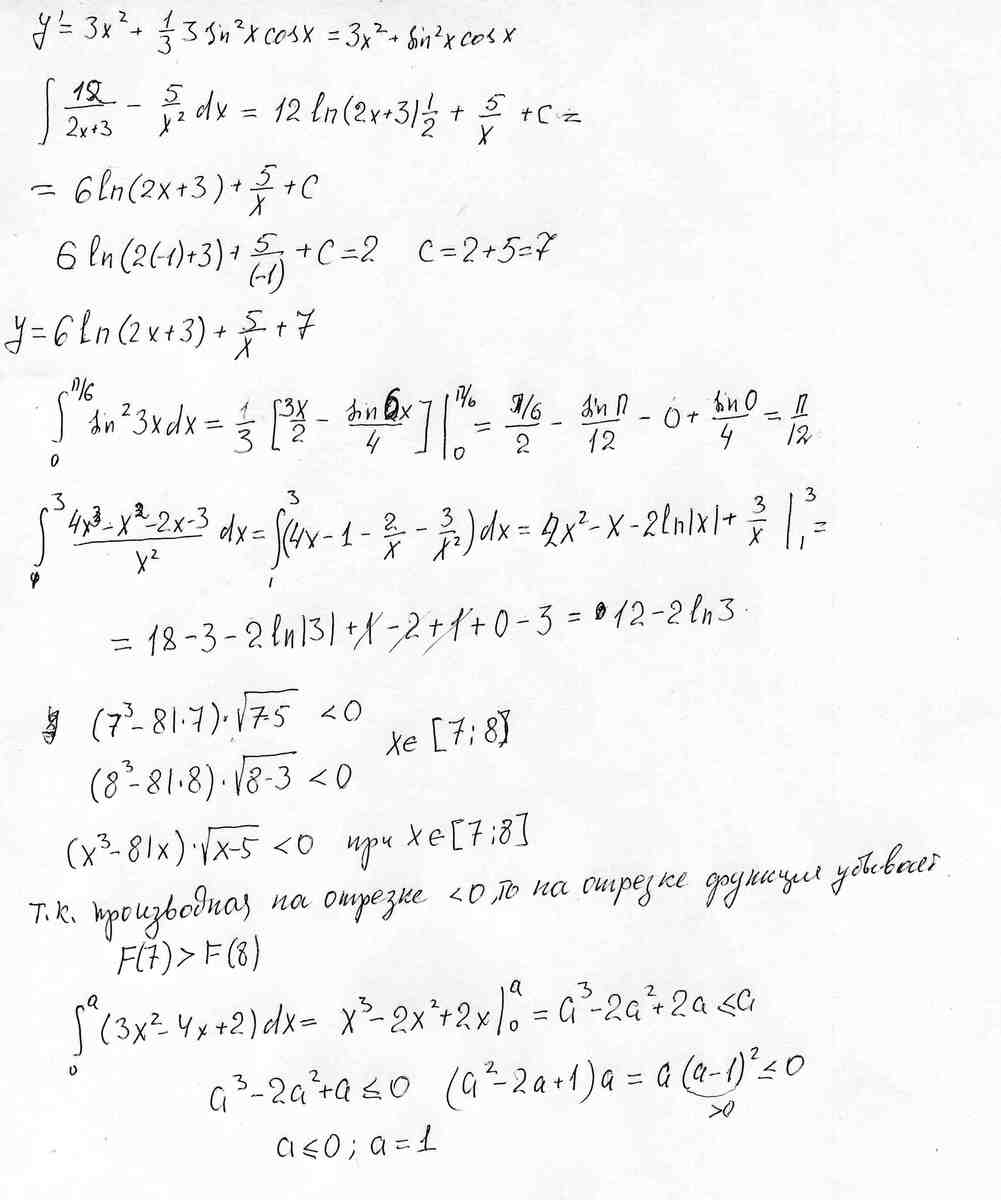 y' = 3x² + 1/3 3 sin²x cosx = 3x² + sin²x cosx
∫ 12/(2x+3) - 5/x² dx = 12 ln(2x+3) 1/2 + 5/x + C =
= 6 ln(2x+3) + 5/x + C
6 ln(2(-1)+3) + 5/(-1) + C = 2   C = 2+5 = 7
y = 6 ln(2x+3) + 5/x + 7
∫₀^(π/6) sin²3x dx = 1/3 [3x/2 - sin6x/4] |₀^(π/6) = (π/6)/2 - sinπ/12 - 0 + sin0/4 = π/12
∫₁³ (4x³-x²-2x-3)/x² dx = ∫₁³ (4x - 1 - 2/x - 3/x²) dx = 2x² - x - 2ln|x| + 3/x |₁³ =
= 18 - 3 - 2 ln|3| + 1 - 2 + 1 + 0 - 3 = 12 - 2 ln3.
(7³ - 81·7)·√(7-5) < 0
x∈[7;8]
(8³ - 81·8)·√(8-3) < 0
(x³ - 81x)·√(x-5) < 0 при x∈[7;8]
т.к. производная на отрезке <0, то на отрезке функция убывает
F(7) > F(8)
∫₀^a (3x² - 4x + 2) dx = x³ - 2x² + 2x |₀^a = a³ - 2a² + 2a ≤ a
a³ - 2a² + a ≤ 0   (a² - 2a + 1)a = a(a-1)² ≤ 0
>0
a ≤ 0; a = 1